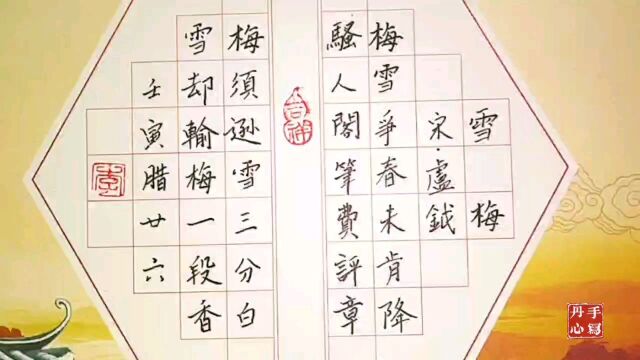 雪梅
宋·盧鉞
梅雪爭春未肯降
騷人閣筆費評章
梅須遜雪三分白
雪却輸梅一段香
壬寅腊廿六
手寫
丹心